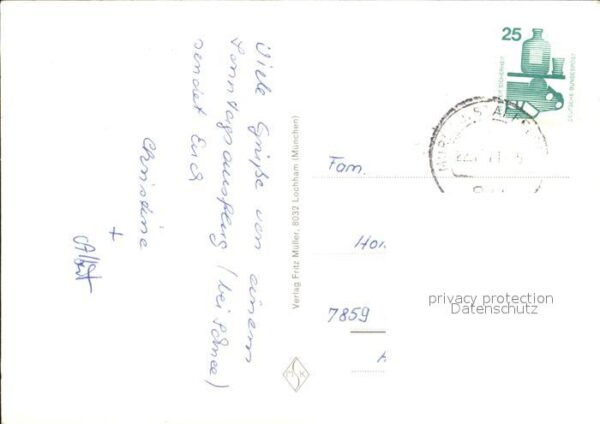 Viele Grüße von einem
Sonntagsausflug (bei Schnee)
sendet Euch
Christine
+
Albert
Verlag Fritz Müller, 8032 Lochham (München)
SK
25
DEUTSCHE BUNDESPOST
Fam.
Hor
7859
privacy protection
Datenschutz